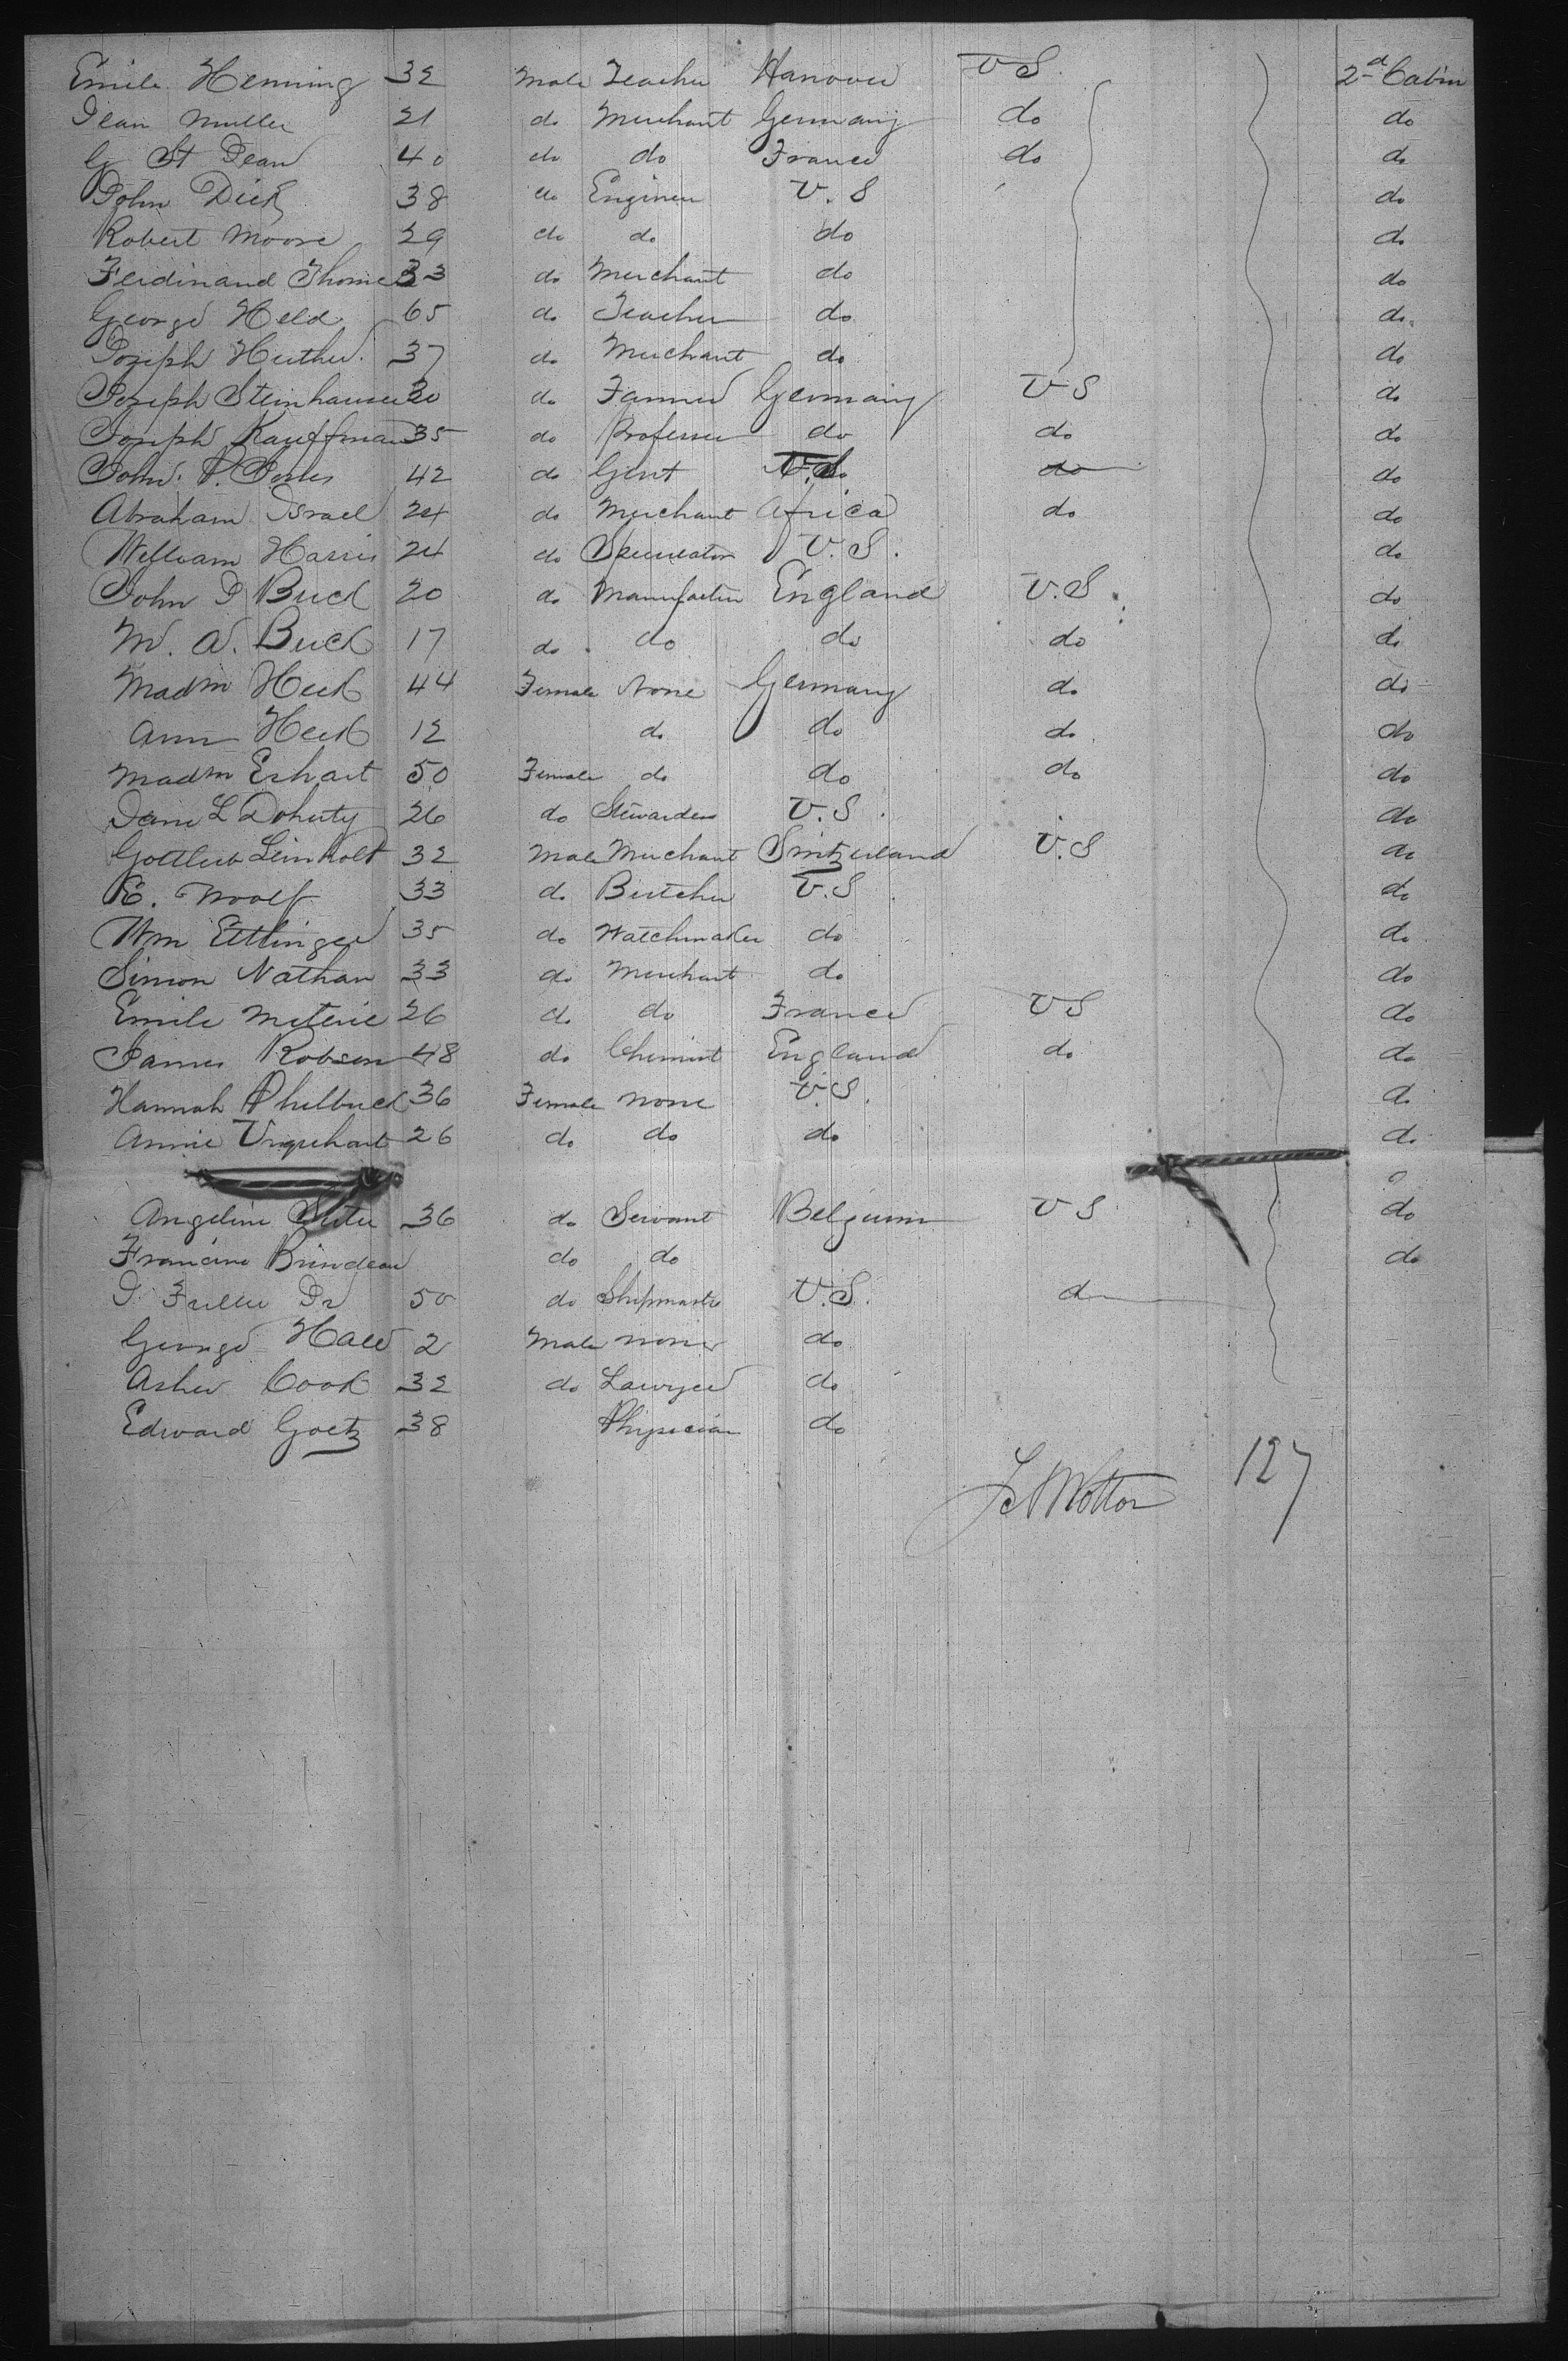 Emile Henning 32 Male Teacher Hanover U S. 2nd Cabin
Jean Muller 21 do Merchant Germany do do
G St Jean 40 do do France do do
John Dick 38 do Engineer U. S do
Robert Moore 29 do do do do
Ferdinand 33 do Merchant do do
George Held 65 do Teacher do do
Joseph 37 do Merchant do do
Joseph Steinhauser 30 do Farmer Germany U S do
Joseph Kauffman 35 do Professor do do do
John. P. 42 do Gent do do
Abraham Israel 24 do Merchant Africa do do
William Harris 24 do Speculator U. S. do
John P Buck 20 do Manufactur England U. S. do
M. A. Buck 17 do do do do do
Madm Heck 44 Female None Germany do do
Ann Heck 12 do do do do
Madm Erhart 50 Female do do do do
Jane L Doherty 26 do Stewardess U. S. do
Gottlieb 32 Male Merchant Switzerland U. S do
E. Woolf 33 do Butcher U. S. do
Wm Ettlinger 35 do Watchmaker do do
Simon Nathan 33 do Merchant do do
Emile 26 do do France U S do
James Robson 48 do Chemist England do do
Hannah Philbrick 36 Female none U. S. do
Annie Urquhart 26 do do do do
Angeline 36 do Servant Belgium U S do
Francine Brindeau do do do
J Fuller Jr 50 do Shipmaster U. S. do
George Hall 2 Male none do
Asher Cook 32 do Lawyer do
Edward Goetz 38 Physician do
127
Wotton